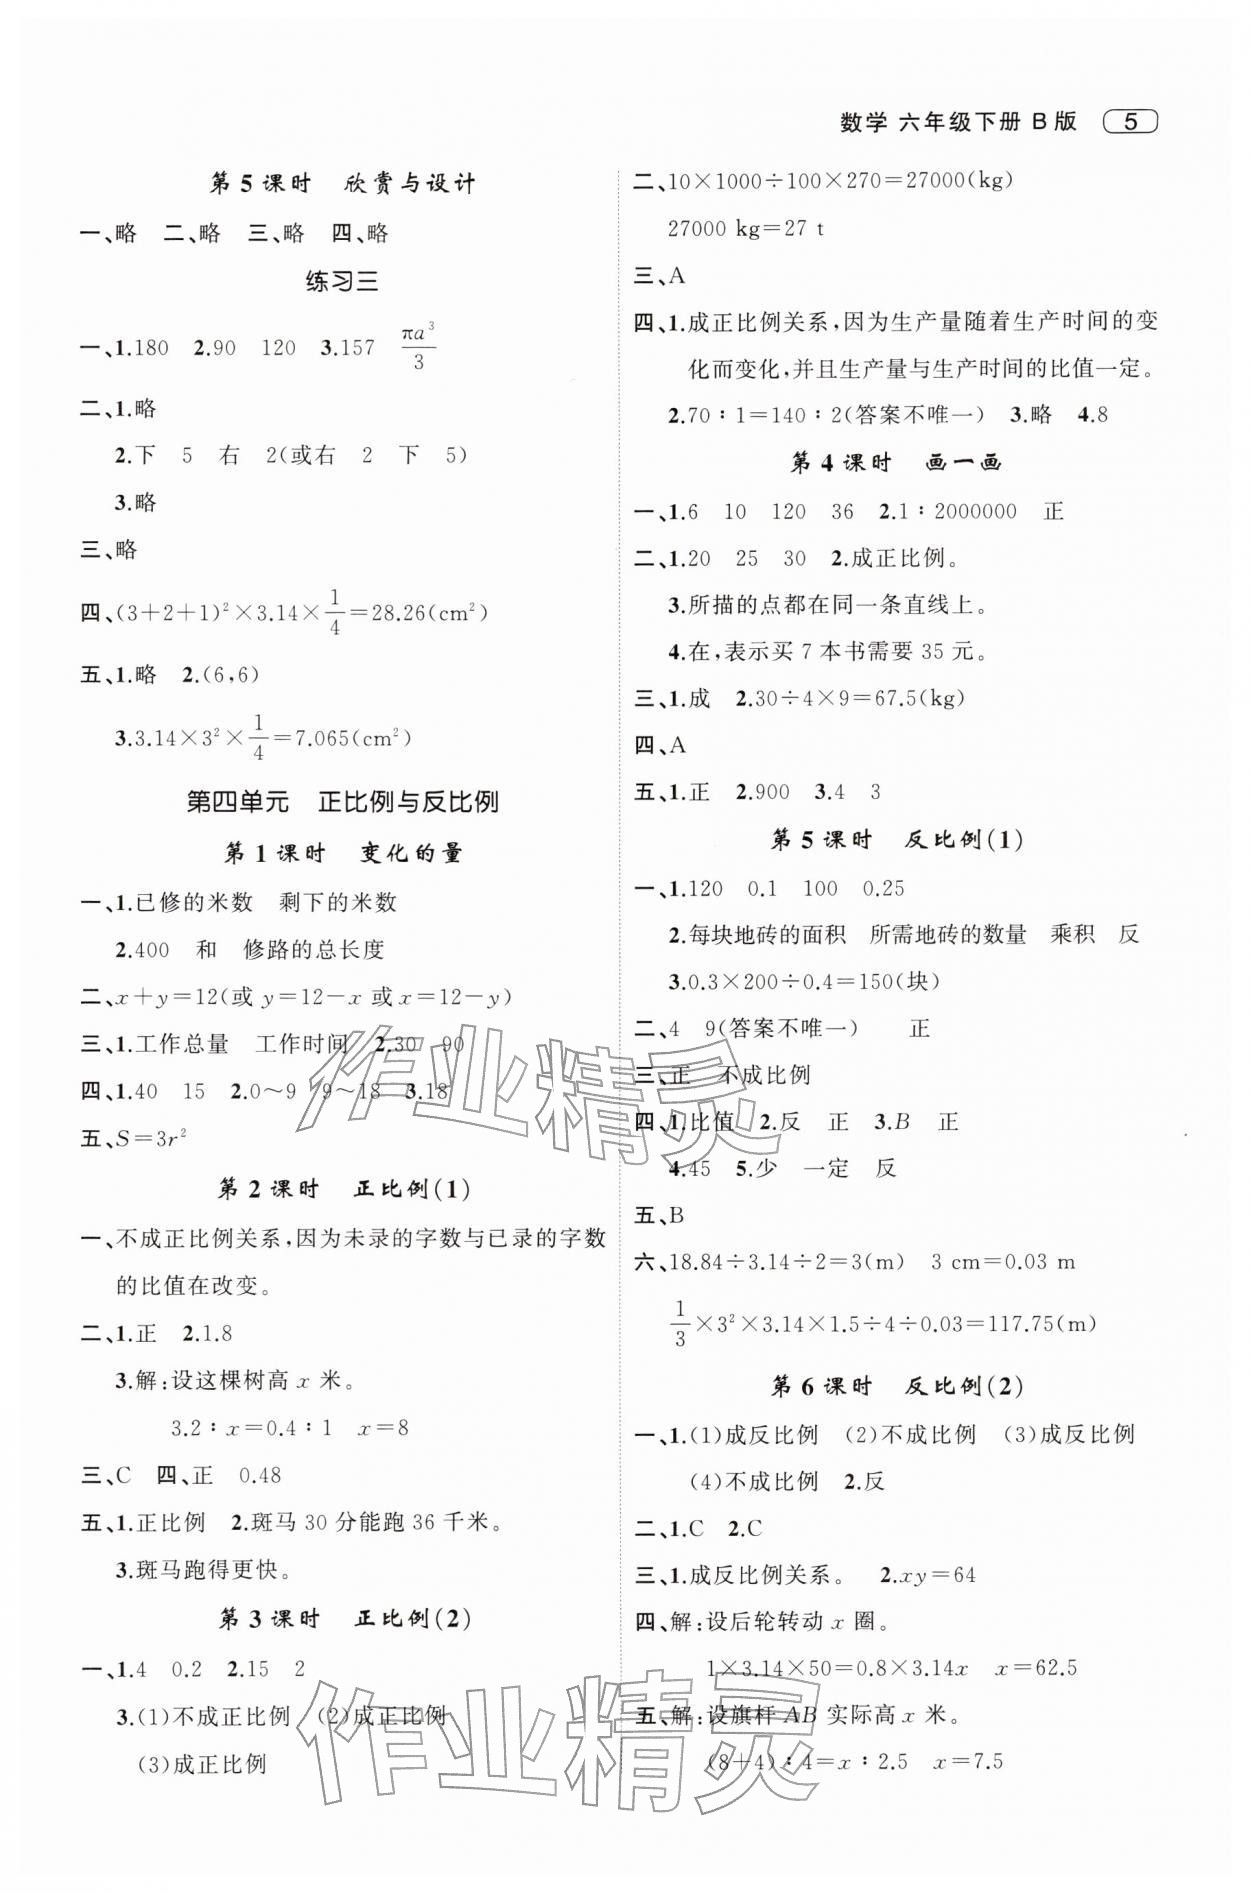 数学 六年级下册 B 版 5
第 5 课时 欣赏与设计
一、略 二、略 三、略 四、略
练习三
一、1.180 2.90 120 3.157 πa³/3
二、1.略
2.下 5 右 2(或右 2 下 5)
3.略
三、略
四、(3+2+1)²×3.14×1/4=28.26(cm²)
五、1.略 2.(6,6)
3.3.14×3²×1/4=7.065(cm²)
第四单元 正比例与反比例
第 1 课时 变化的量
一、1.已修的米数 剩下的米数
2.400 和 修路的总长度
二、x+y=12(或 y=12-x 或 x=12-y)
三、1.工作总量 工作时间 2.30 90
四、1.40 15 2.0~9 9~18 3.18
五、S=3r²
第 2 课时 正比例(1)
一、不成正比例关系,因为未录的字数与已录的字数
的比值在改变。
二、1.正 2.1.8
3.解:设这棵树高 x 米。
3.2∶x=0.4∶1 x=8
三、C 四、正 0.48
五、1.正比例 2.斑马 30 分能跑 36 千米。
3.斑马跑得更快。
第 3 课时 正比例(2)
一、1.4 0.2 2.15 2
3.(1)不成正比例 (2)成正比例
(3)成正比例
二、10×1000÷100×270=27000(kg)
27000 kg=27 t
三、A
四、1.成正比例关系,因为生产量随着生产时间的变
化而变化,并且生产量与生产时间的比值一定。
2.70∶1=140∶2(答案不唯一) 3.略 4.8
第 4 课时 画一画
一、1.6 10 120 36 2.1∶2000000 正
二、1.20 25 30 2.成正比例。
3.所描的点都在同一条直线上。
4.在,表示买 7 本书需要 35 元。
三、1.成 2.30÷4×9=67.5(kg)
四、A
五、1.正 2.900 3.4 3
第 5 课时 反比例(1)
一、1.120 0.1 100 0.25
2.每块地砖的面积 所需地砖的数量 乘积 反
3.0.3×200÷0.4=150(块)
二、4 9(答案不唯一) 正
三、正 不成比例
四、1.比值 2.反 正 3.B 正
4.45 5.少 一定 反
五、B
六、18.84÷3.14÷2=3(m) 3 cm=0.03 m
1/3×3²×3.14×1.5÷4÷0.03=117.75(m)
第 6 课时 反比例(2)
一、1.(1)成反比例 (2)不成比例 (3)成反比例
(4)不成比例 2.反
二、1.C 2.C
三、1.成反比例关系。 2.xy=64
四、解:设后轮转动 x 圈。
1×3.14×50=0.8×3.14x x=62.5
五、解:设旗杆 AB 实际高 x 米。
(8+4)∶4=x∶2.5 x=7.5
作业精灵
作业精灵